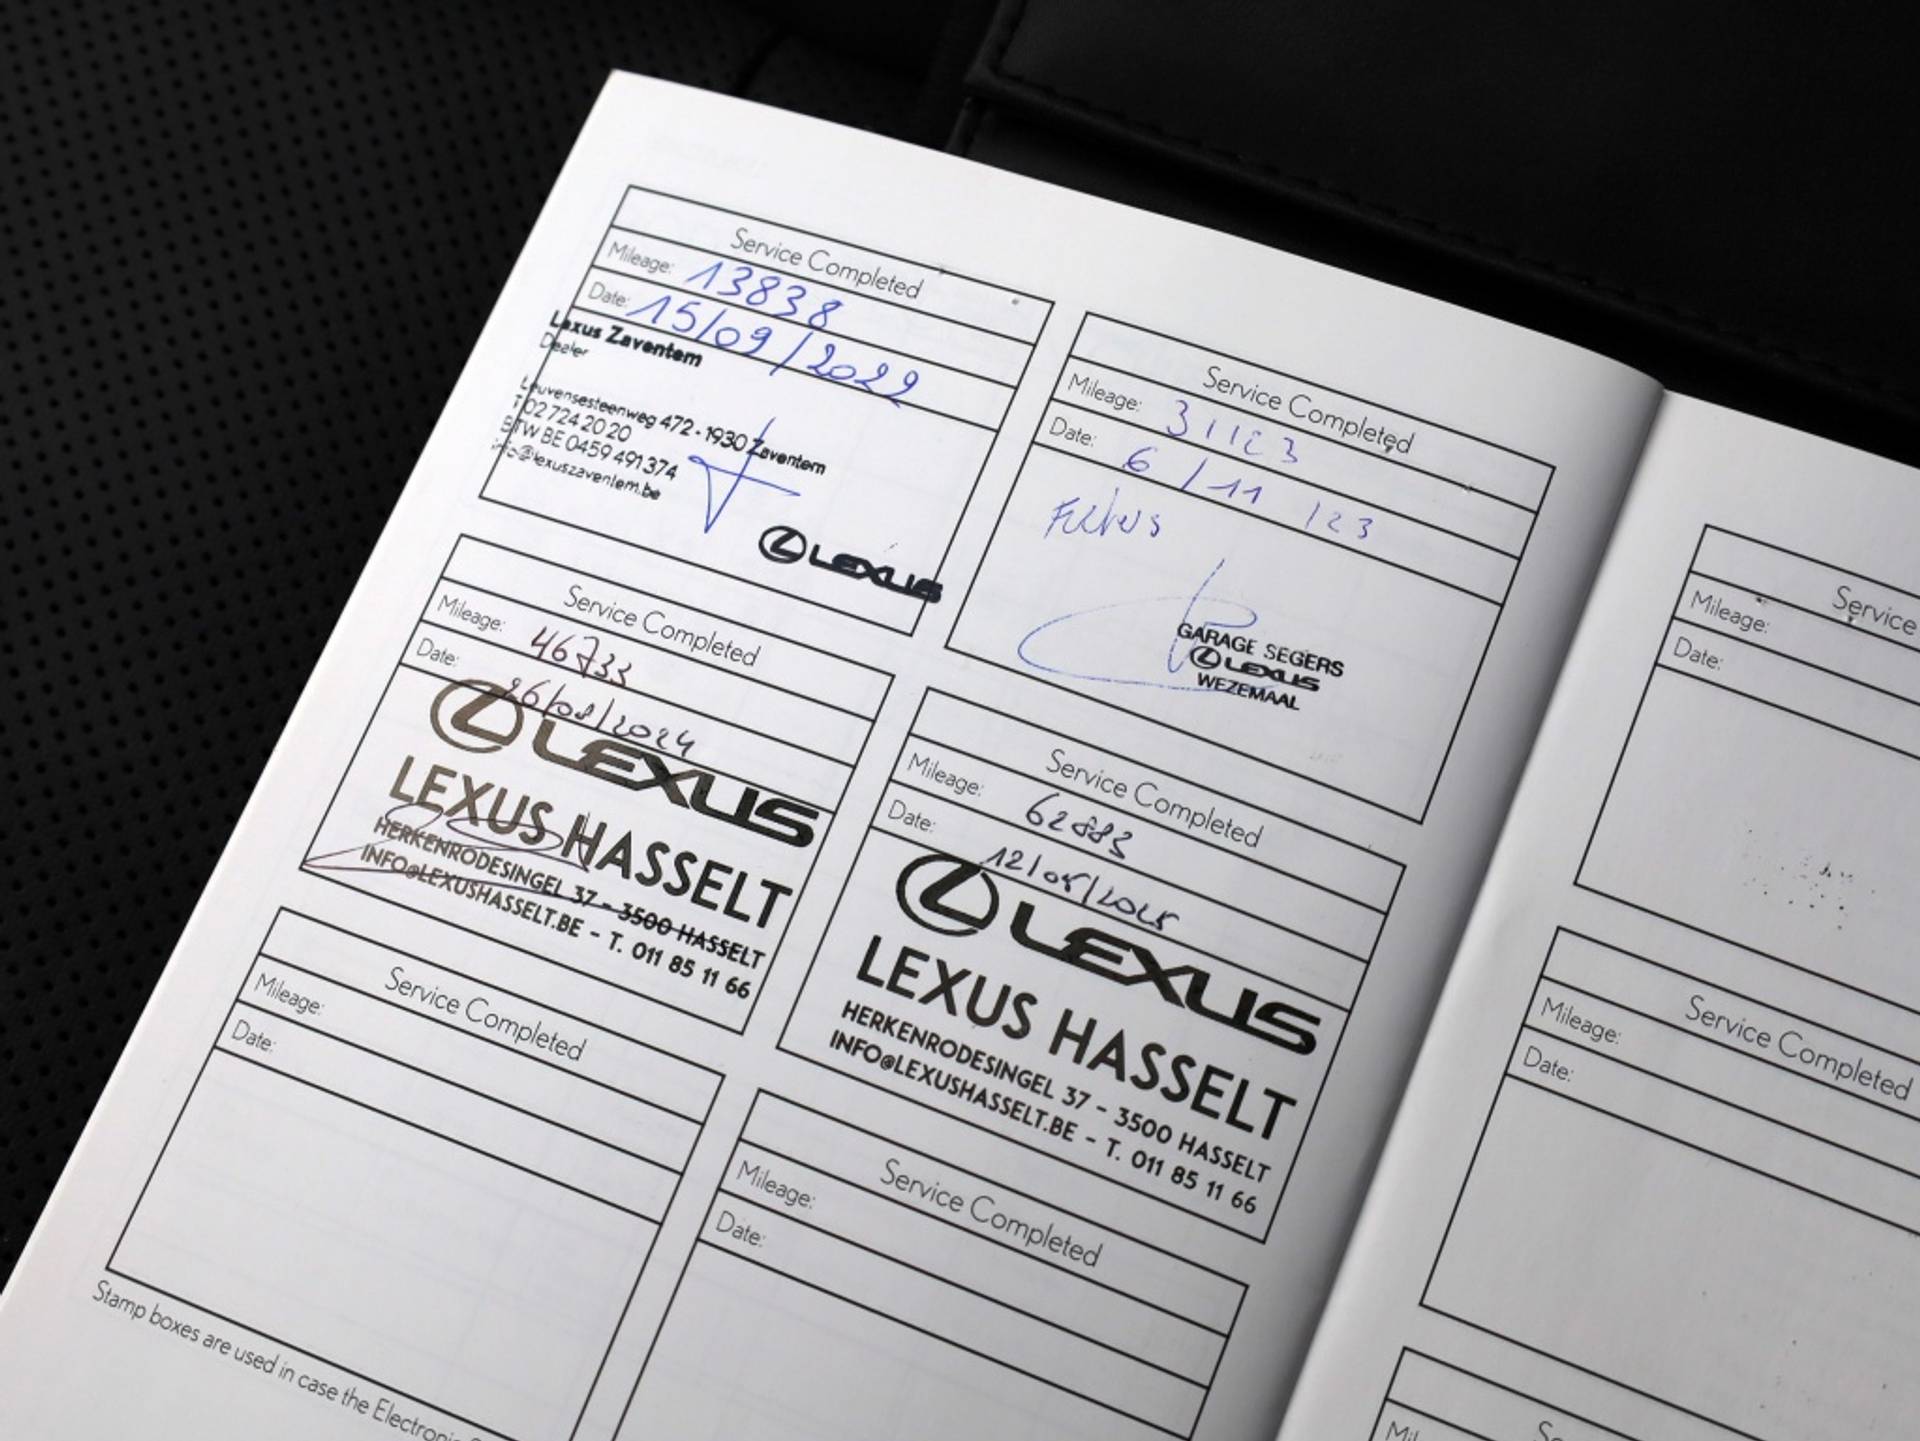 Service Completed
Mileage: 13838
Date: 15/09/2022
Lexus Zaventem
Dealer
Leuvensesteenweg 472 - 1930 Zaventem
T 02 724 20 20
BTW BE 0459 491 374
info@lexuszaventem.be
LEXUS
Service Completed
Mileage: 31123
Date: 6/11/23
Filters
GARAGE SEGERS
LEXUS
WEZEMAAL
Service Completed
Mileage: 46733
Date: 26/08/2024
LEXUS
LEXUS HASSELT
HERKENRODESINGEL 37 - 3500 HASSELT
INFO@LEXUSHASSELT.BE - T. 011 85 11 66
Service Completed
Mileage: 62883
Date:
LEXUS
LEXUS HASSELT
HERKENRODESINGEL 37 - 3500 HASSELT
INFO@LEXUSHASSELT.BE - T. 011 85 11 66
Service Completed
Mileage:
Date:
Service Completed
Mileage:
Date:
Stamp boxes are used in case the
Service
Mileage:
Date:
Service Completed
Mileage:
Date: